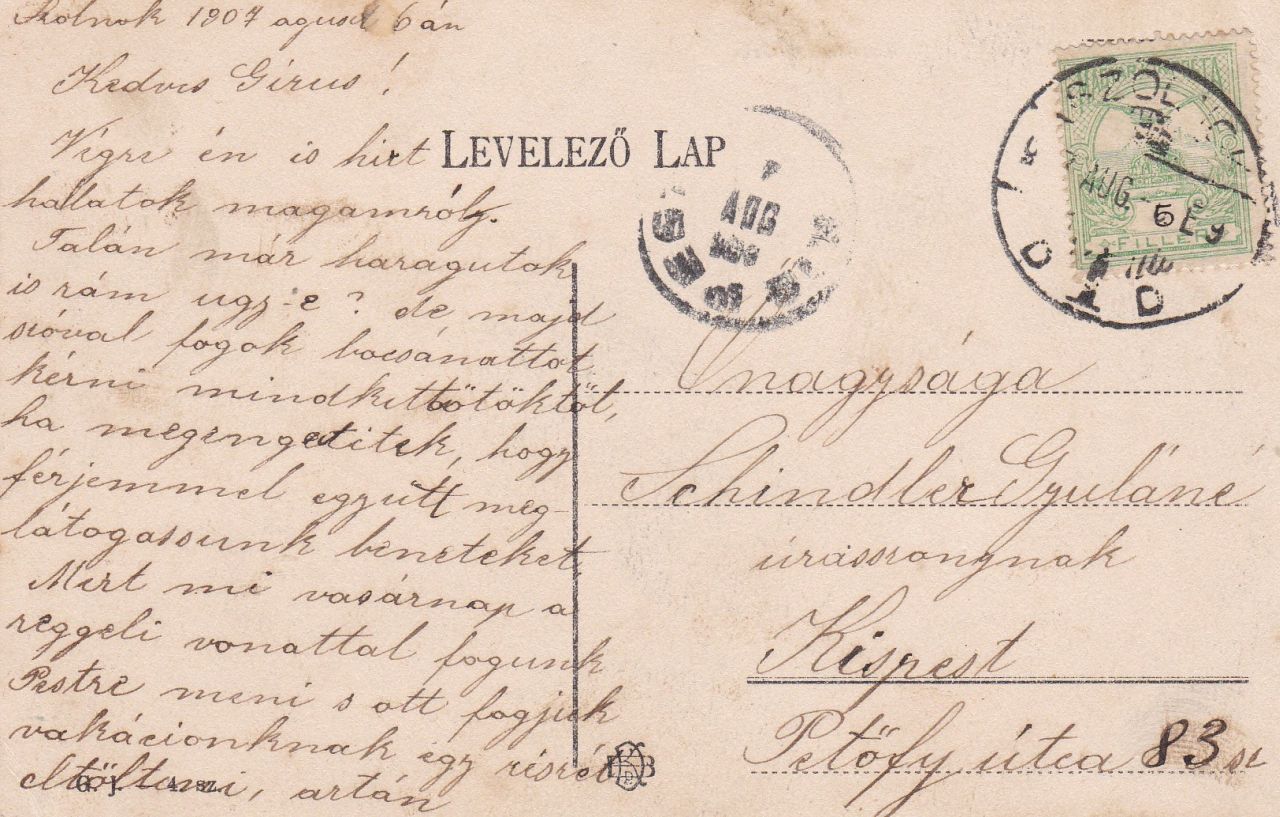 Szolnok 1907 agust 6 án
Kedves Gírus!
Vígre én is hirt
halatok magamról.
Talán már haragutok
is rám ugy-e? de majd
szóval fogok bocsánattot
kérni mindkettőtöktöl,
ha megengetitek, hogy
férjemmel együtt meg-
látogassunk beneteket.
Mert mi vasárnap a
reggeli vonattal fogunk
Pestre meni s ott fogjuk
vakációnknak egy részét
eltölteni, artán
LEVELEZŐ LAP
AUG
SZOLNOK
AUG. 5 E9
FILLER
Nagysága
Schindler Gyuláné
úrasszonynak
Kispest
Petőfy útca 83 sz